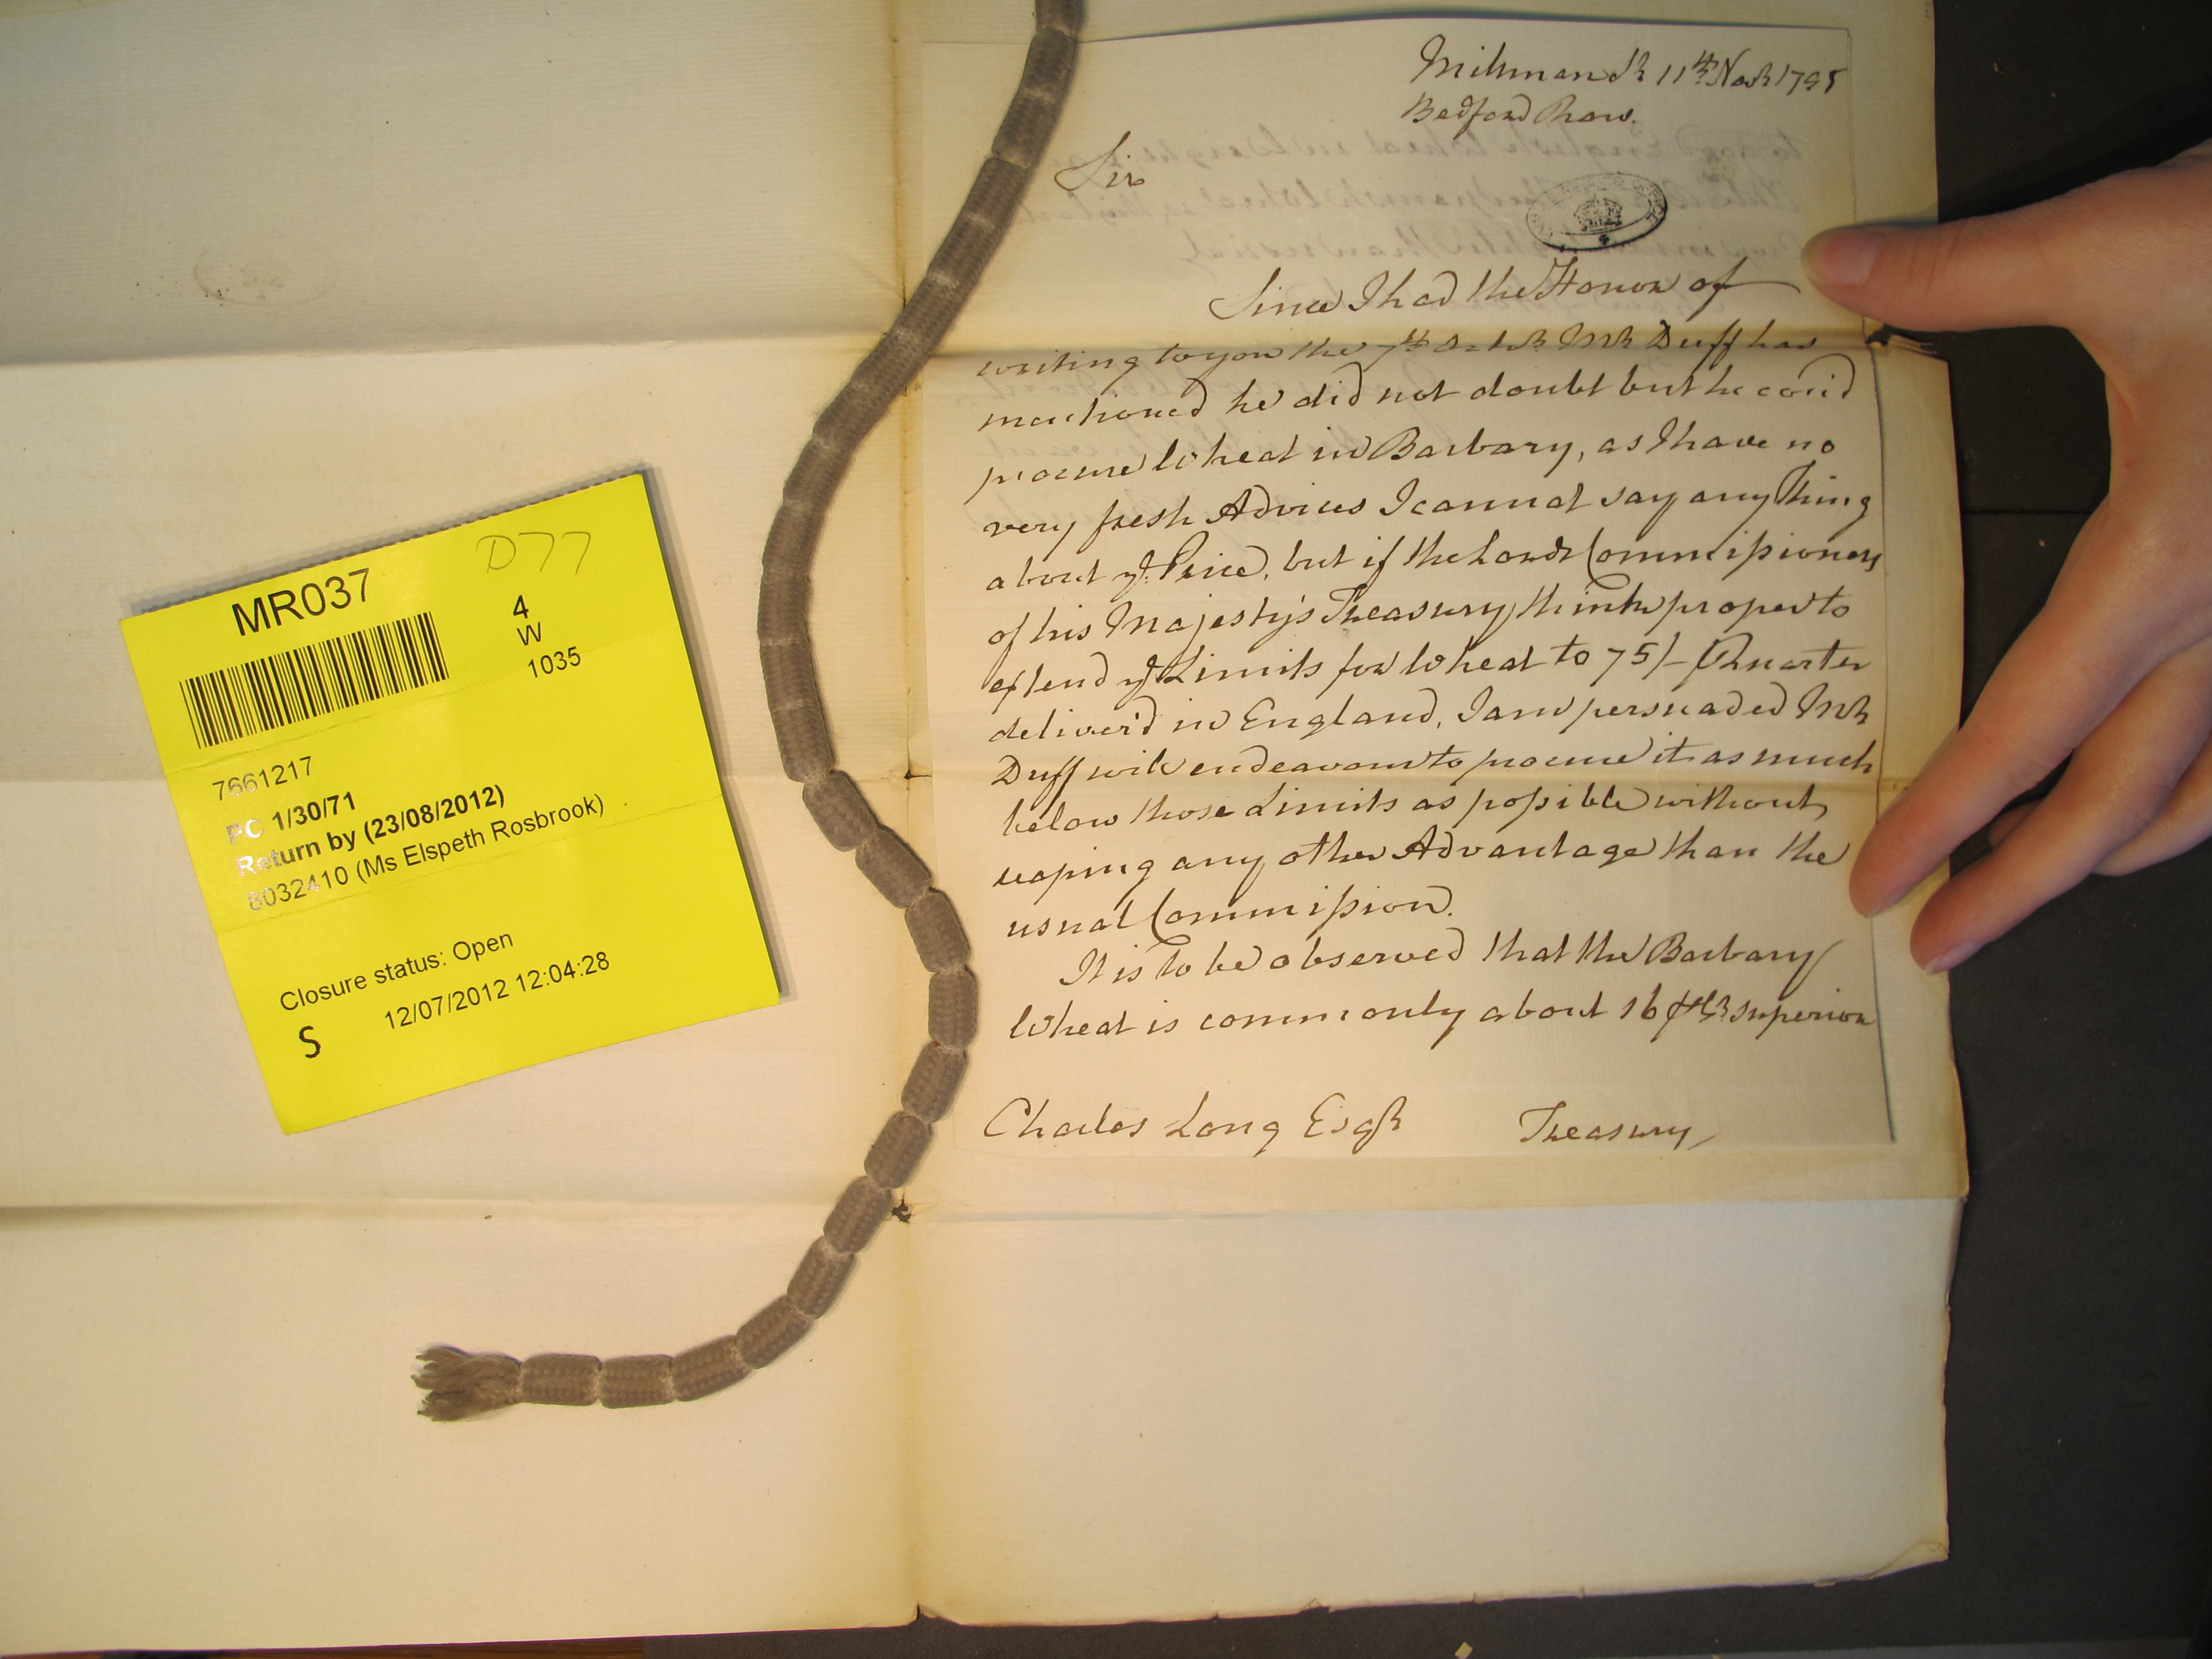 MR037
D77
4
W
1035
7661217
PC 1/30/71
Return by (23/08/2012)
8032410 (Ms Elspeth Rosbrook)
Closure status: Open
S
12/07/2012 12:04:28
Milman St 11th Novr 1795
Bedford Row.
Sir
Since I had the Honor of
writing to you the 7th Octr Mr Duff has
mentioned he did not doubt but he could
procure Wheat in Barbary, as I have no
very fresh Advices I cannot say any thing
about ye Price, but if the Lords Commissioners
of his Majesty's Treasury think proper to
extend ye Limits for Wheat to 75/- Quarter
deliver'd in England, I am persuaded Mr
Duff will endeavour to procure it as much
below those Limits as possible without
reaping any other Advantage than the
usual Commission.
It is to be observed that the Barbary
Wheat is commonly about 16 superior
Charles Long Esqr Treasury